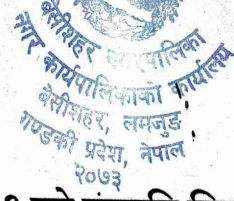 बेसीशहर नगरपालिका
नगर कार्यपालिकाको कार्यालय
बेसीशहर, लमजुङ
गण्डकी प्रदेश, नेपाल
२०७३